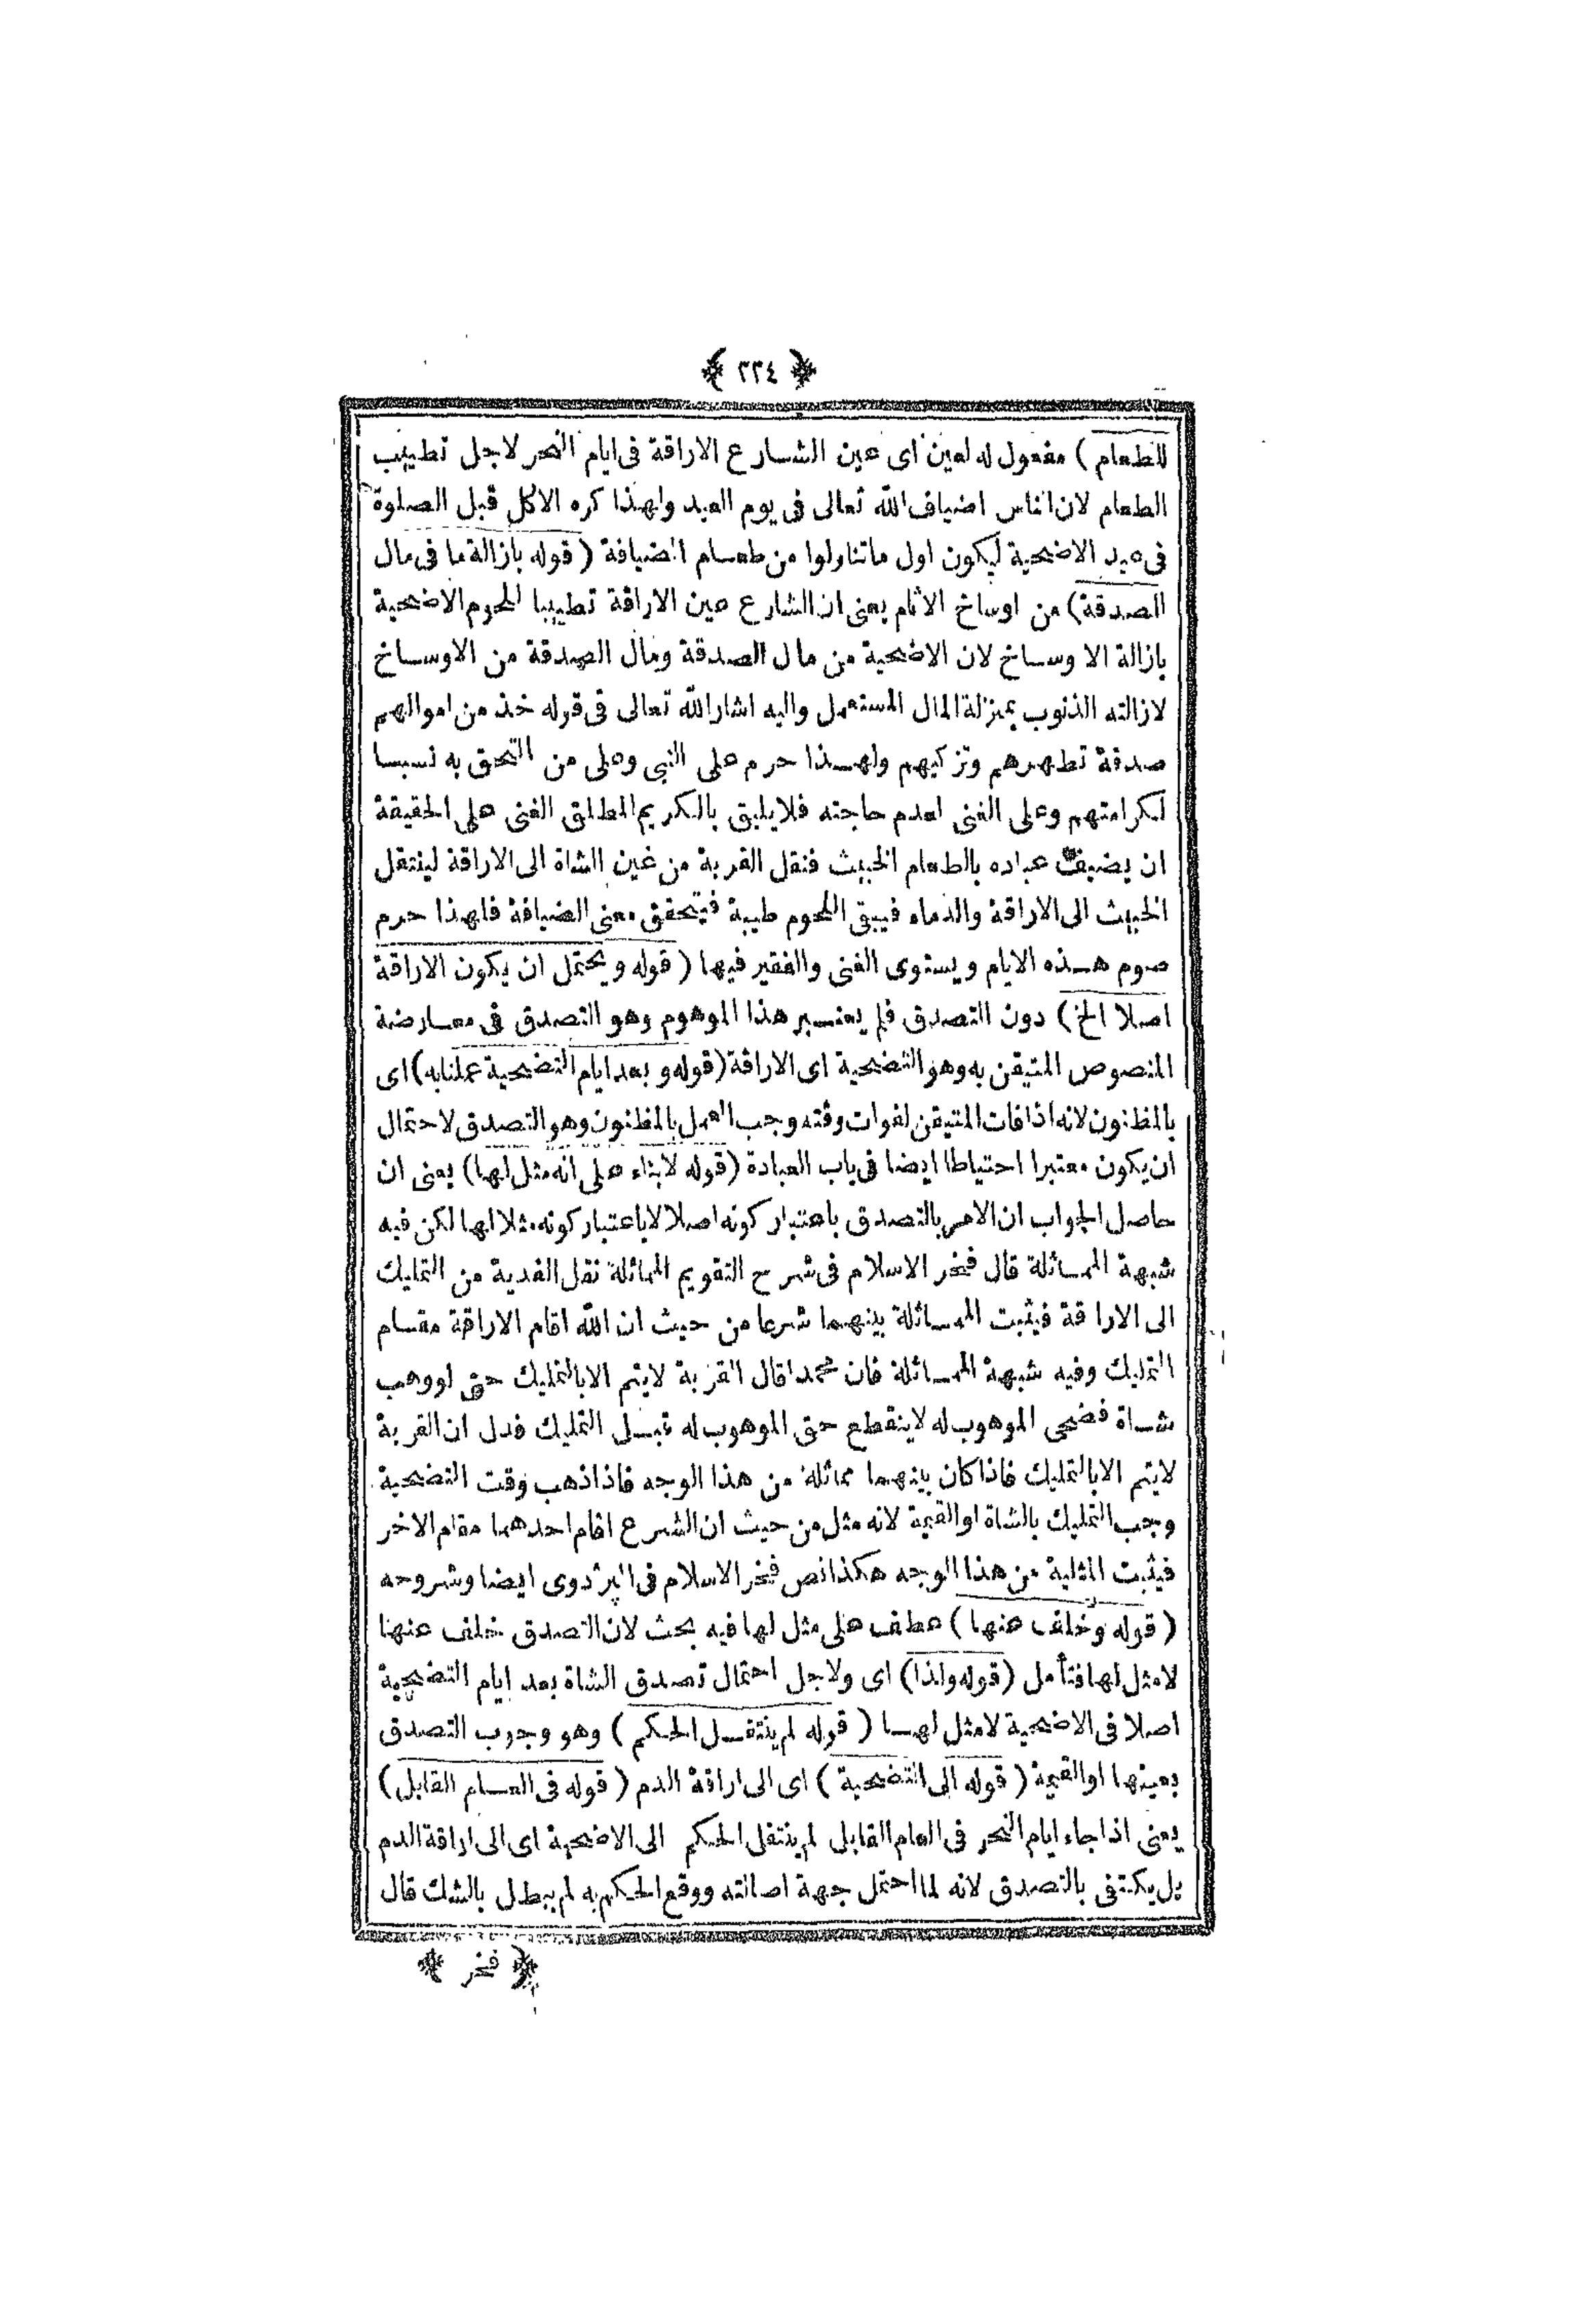 ﴿ ٢٢٤ ﴾
للطعام ) مفعول له لعين اى عين الشارع الاراقة فى ايام النحر لاجل تطييب
الطعام لان الناس اضياف الله تعالى فى يوم العيد ولهذا كره الاكل قبل الصلوة
فى عيد الاضحية ليكون اول ماتناولوا من طعام الضيافة ( قوله بازالة ما فى مال
الصدقة) من اوساخ الاثام يعنى ان الشارع عين الاراقة تطييبا للحوم الاضحية
بازالة الاوساخ لان الاضحية من مال الصدقة ومال الصدقة من الاوساخ
لازالته الذنوب بمنزلة المال المستعمل واليه اشار الله تعالى فى قوله خذ من اموالهم
صدقة تطهرهم وتزكيهم ولهذا حرم على النبى وعلى من التحق به نسبا
لكرامتهم وعلى الغنى لعدم حاجته فلايليق بالكريم المطلق الغنى على الحقيقة
ان يضيف عباده بالطعام الخبيث فنقل القربة من عين الشاة الى الاراقة لينتقل
الخبث الى الاراقة والدماء فيبقى اللحوم طيبة فيتحقق معنى الضيافة فلهذا حرم
صوم هذه الايام ويستوى الغنى والفقير فيها ( قوله ويحتمل ان يكون الاراقة
اصلا الخ ) دون التصدق فلم يعتبر هذا الموهوم وهو التصدق فى معارضة
المنصوص المتيقن به وهو التضحية اى الاراقة (قوله و بعد ايام التضحية عملنا به) اى
بالمظنون لانه اذا فات المتيقن لفوات وقته وجب العمل بالمظنون وهو التصدق لاحتمال
ان يكون معتبرا احتياطا ايضا فى باب العبادة (قوله لا بناء على انه مثل لها) يعنى ان
حاصل الجواب ان الامر بالتصدق باعتبار كونه اصلا لا باعتبار كونه مثلا لها لكن فيه
شبهة المماثلة قال فخر الاسلام فى شرح التقويم المماثلة نقل الفدية من التمليك
الى الاراقة فيثبت المماثلة بينهما شرعا من حيث ان الله اقام الاراقة مقام
التمليك وفيه شبهة المماثلة فان محمدا قال القربة لايتم الا بالتمليك حتى لو وهب
شاة فضحى الموهوب له لاينقطع حق الموهوب له قبل التمليك فدل ان القربة
لايتم الا بالتمليك فاذا كان بينهما مماثلة من هذا الوجه فاذا ذهب وقت التضحية
وجب التمليك بالشاة او القيمة لانه مثل من حيث ان الشرع اقام احدهما مقام الاخر
فيثبت المثلية من هذا الوجه هكذا نص فخر الاسلام فى البزدوى ايضا وشروحه
( قوله وخلف عنها ) عطف على مثل لها فيه بحث لان التصدق خلف عنها
لامثل لها فتأمل (قوله ولذا) اى ولاجل احتمال تصدق الشاة بعد ايام التضحية
اصلا فى الاضحية لامثل لها ( قوله لم ينتقل الحكم ) وهو وجوب التصدق
بعينها او القيمة ( قوله الى التضحية ) اى الى اراقة الدم ( قوله فى العام القابل )
يعنى اذا جاء ايام النحر فى العام القابل لم ينتقل الحكم الى الاضحية اى الى اراقة الدم
بل يكتفى بالتصدق لانه لما احتمل جهة اصالته ووقع الحكم به لم يبطل بالشك قال
﴿ فخر ﴾